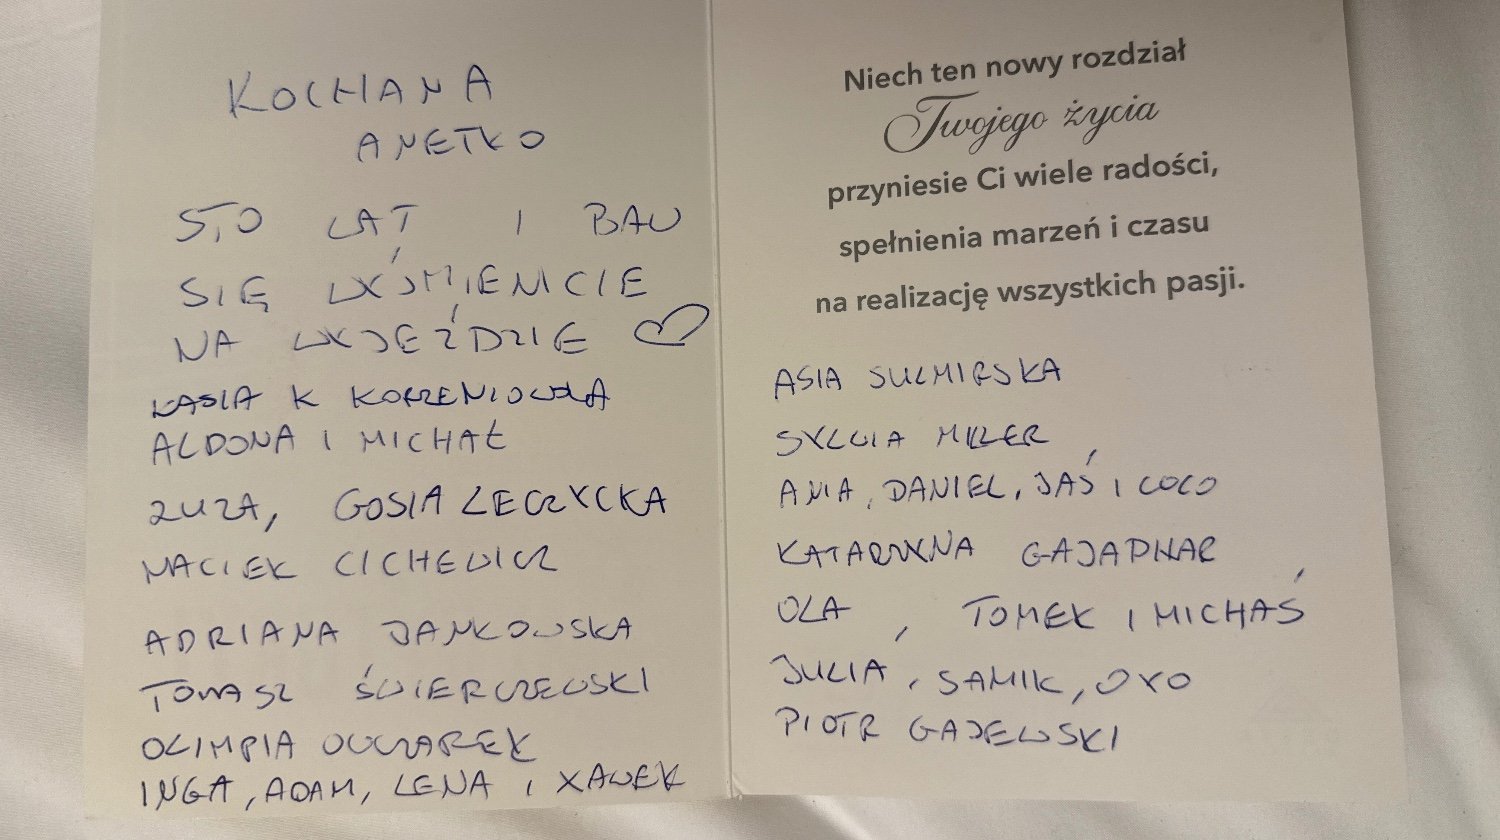 KOCHANA
ANETKO
STO LAT I BAW
SIĘ WYŚMIENICIE
NA WYJEŹDZIE
KASIA K KORZENIOWSKA
ALDONA I MICHAŁ
ZUZA, GOSIA ŁĘCZYCKA
MACIEK CICHEWICZ
ADRIANA JANKOWSKA
TOMASZ ŚWIERCZEWSKI
OLIMPIA OWCZAREK
INGA, ADAM, LENA I XAWEK
Niech ten nowy rozdział
Twojego życia
przyniesie Ci wiele radości,
spełnienia marzeń i czasu
na realizację wszystkich pasji.
ASIA SULMIRSKA
SYLWIA MILLER
ANIA, DANIEL, JAŚ I COCO
KATARZYNA GAJADHAR
OLA, TOMEK I MICHAŚ
JULIA, SAMIK, OYO
PIOTR GAJEWSKI